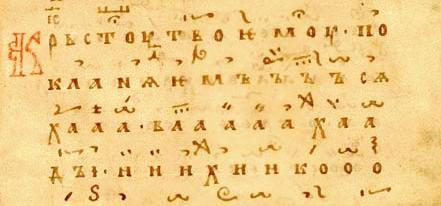 Крьстоу твоѥмоу · по
кланѧѥмъъъъсѧ
хааа · влаааахаа
дъі · иииxиикооо